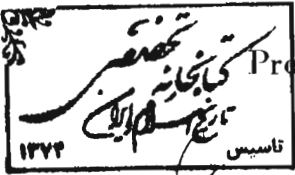 کتابخانه تخصصی
تاریخ اسلام و ایران
تاسیس ۱۳۷۴
Pro